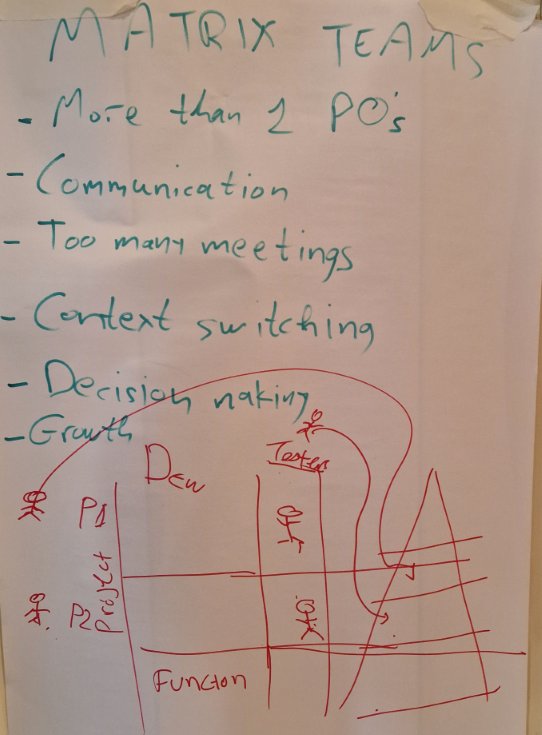 MATRIX TEAMS
- More than 1 PO's
- Communication
- Too many meetings
- Context switching
- Decision naking
- Growth
Dew
Tester
P1
Project
P2
Functon